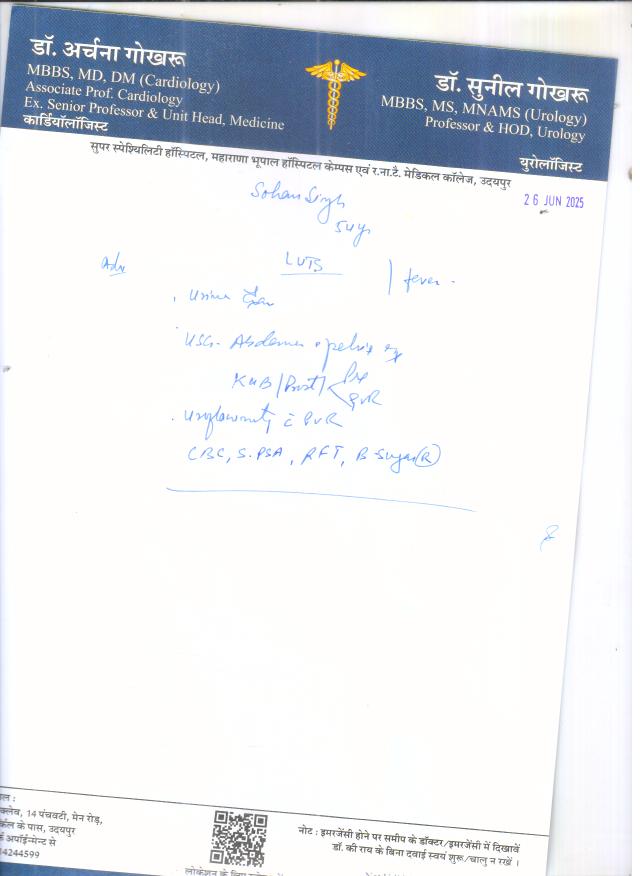 डॉ. अर्चना गोखरू
MBBS, MD, DM (Cardiology)
Associate Prof. Cardiology
Ex. Senior Professor & Unit Head, Medicine
कार्डियॉलॉजिस्ट
डॉ. सुनील गोखरू
MBBS, MS, MNAMS (Urology)
Professor & HOD, Urology
यूरोलॉजिस्ट
सुपर स्पेशियलिटी हॉस्पिटल, महाराणा भूपाल हॉस्पिटल केम्पस एवं र.ना.टै. मेडिकल कॉलेज, उदयपुर
26 JUN 2025
Sohan Singh
54y
Adv
LUTS
fever
Urine
USG - Abdomen & pelvis
KUB/Prost
Pre
PVR
Uroflowmetry c̄ PVR
CBC, S.PSA, RFT, B-Sugar (R)
क्लेव, 14 पंचवटी, मेन रोड़,
के पास, उदयपुर
अपॉईन्मेन्ट से
4244599
नोट : इमरजेंसी होने पर समीप के डॉक्टर/इमरजेंसी में दिखावें
डॉ. की राय के बिना दवाई स्वयं शुरू/चालु न रखें ।